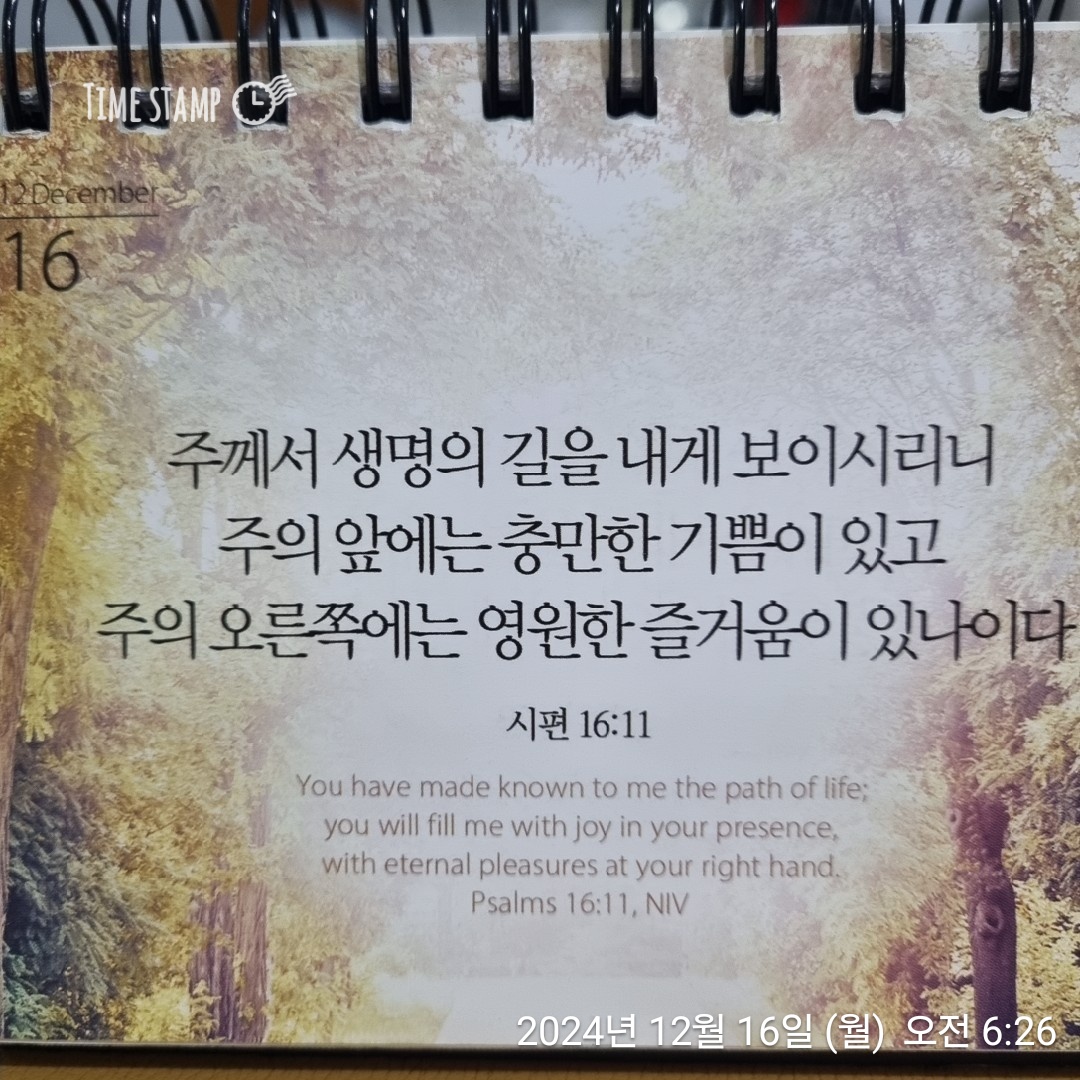 TIME STAMP
12 December
16
주께서 생명의 길을 내게 보이시리니
주의 앞에는 충만한 기쁨이 있고
주의 오른쪽에는 영원한 즐거움이 있나이다
시편 16:11
You have made known to me the path of life;
you will fill me with joy in your presence,
with eternal pleasures at your right hand.
Psalms 16:11, NIV
2024년 12월 16일 (월) 오전 6:26